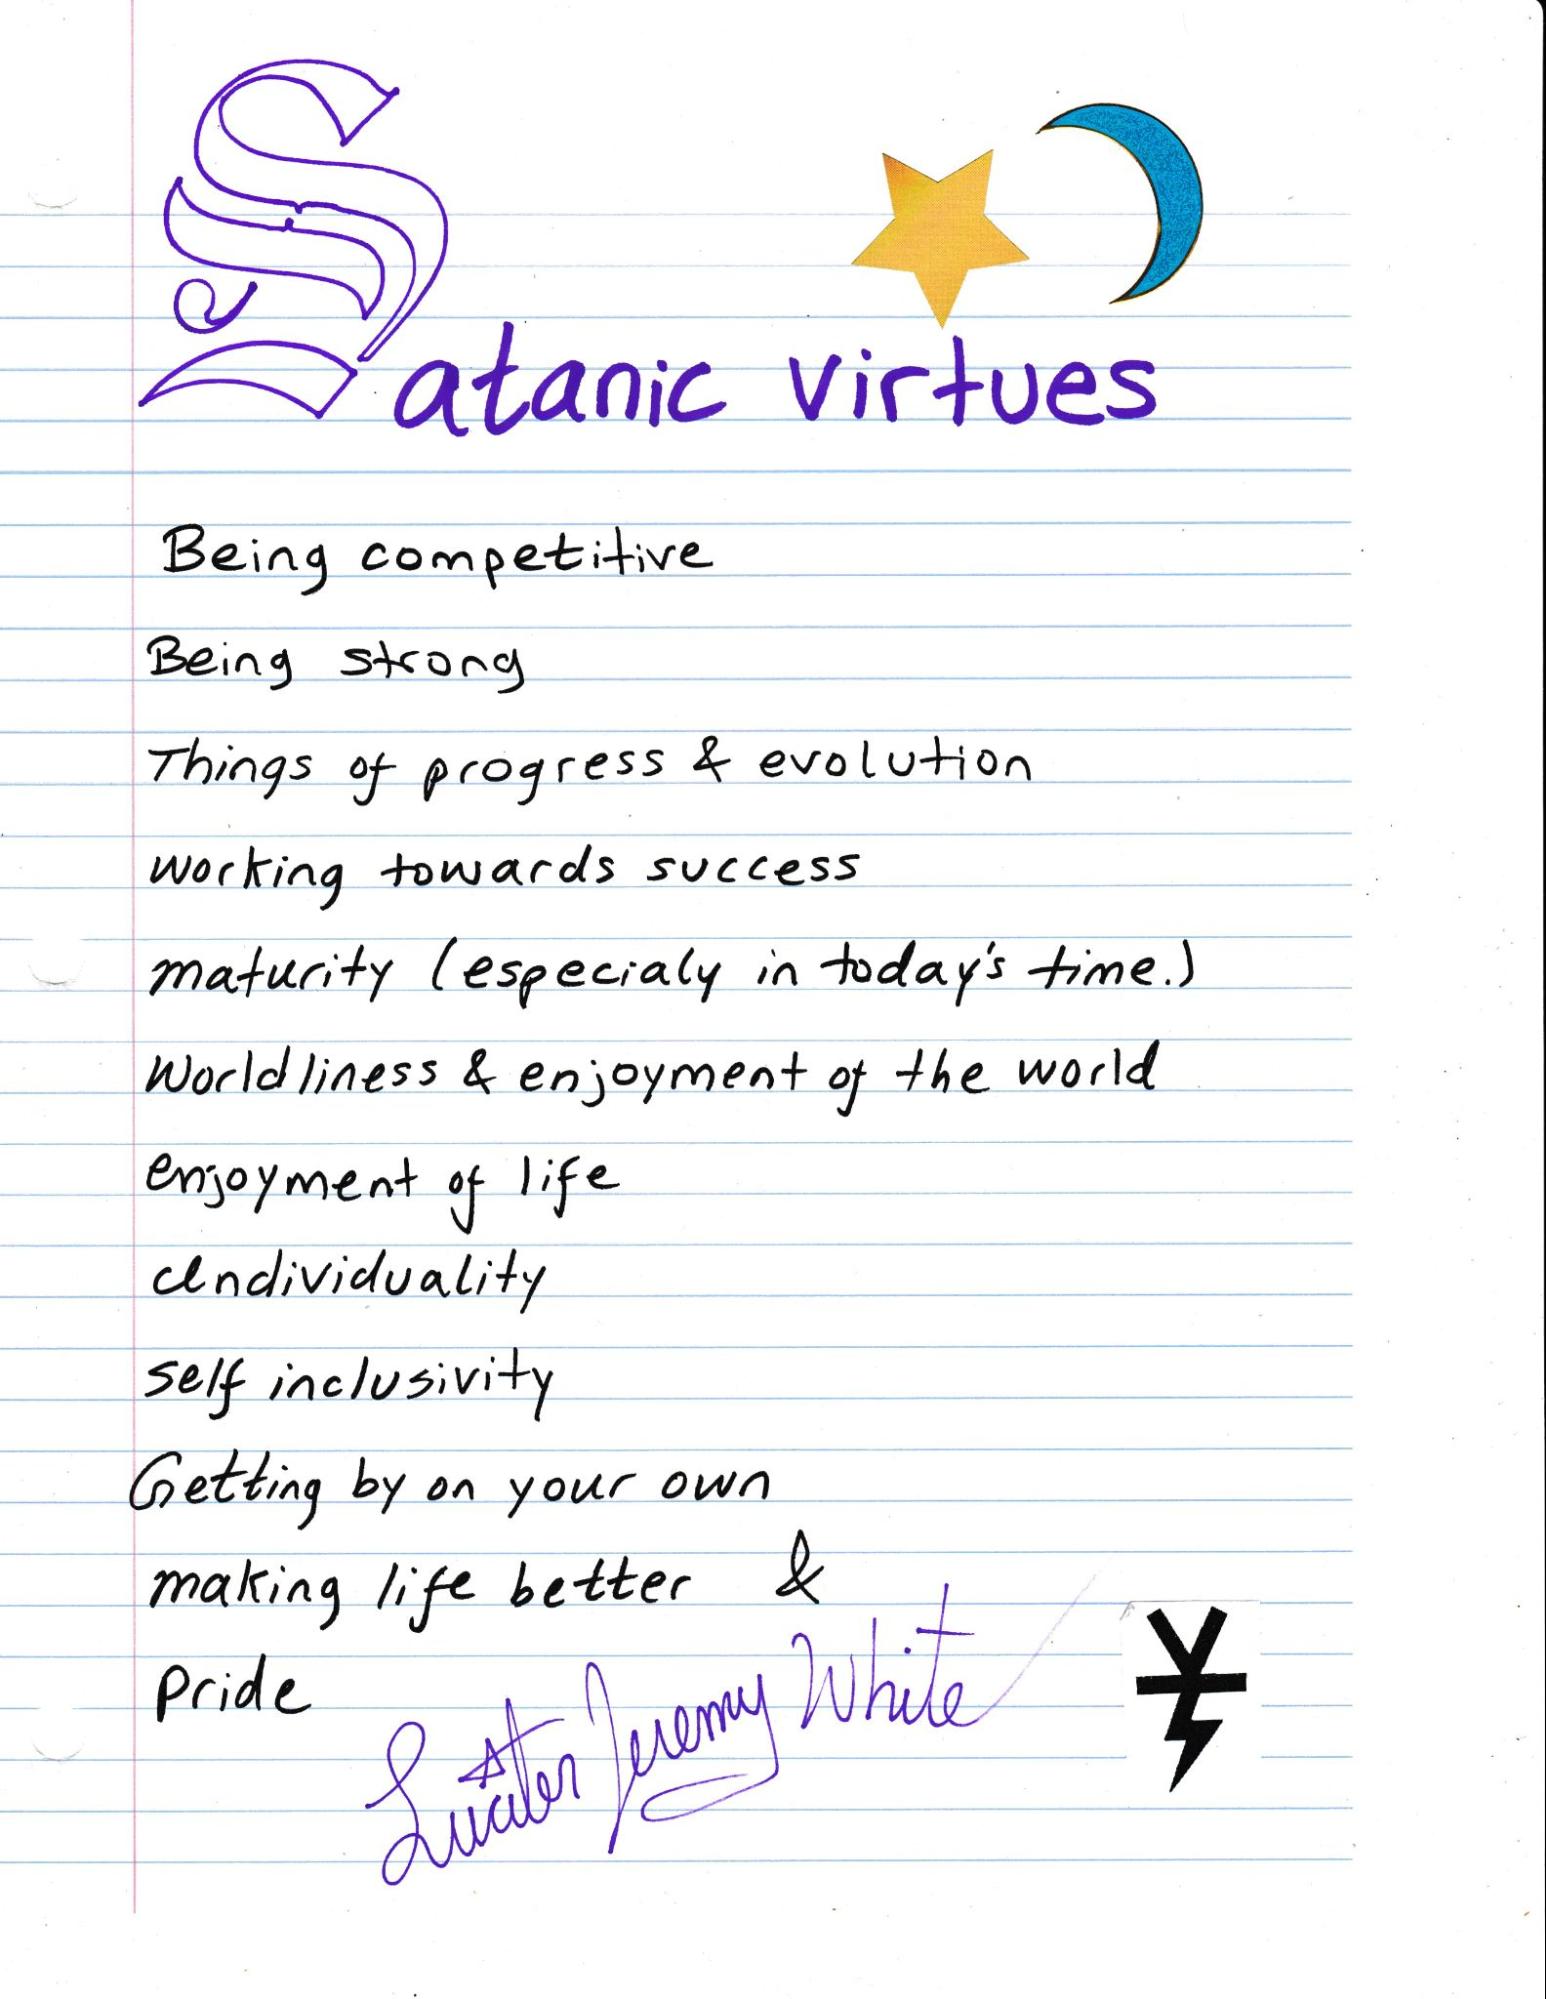 Satanic virtues
Being competitive
Being strong
Things of progress & evolution
working towards success
maturity (especialy in today's time.)
Worldliness & enjoyment of the world
enjoyment of life
Individuality
self inclusivity
Getting by on your own
making life better &
Pride
Lucifer Jeremy White